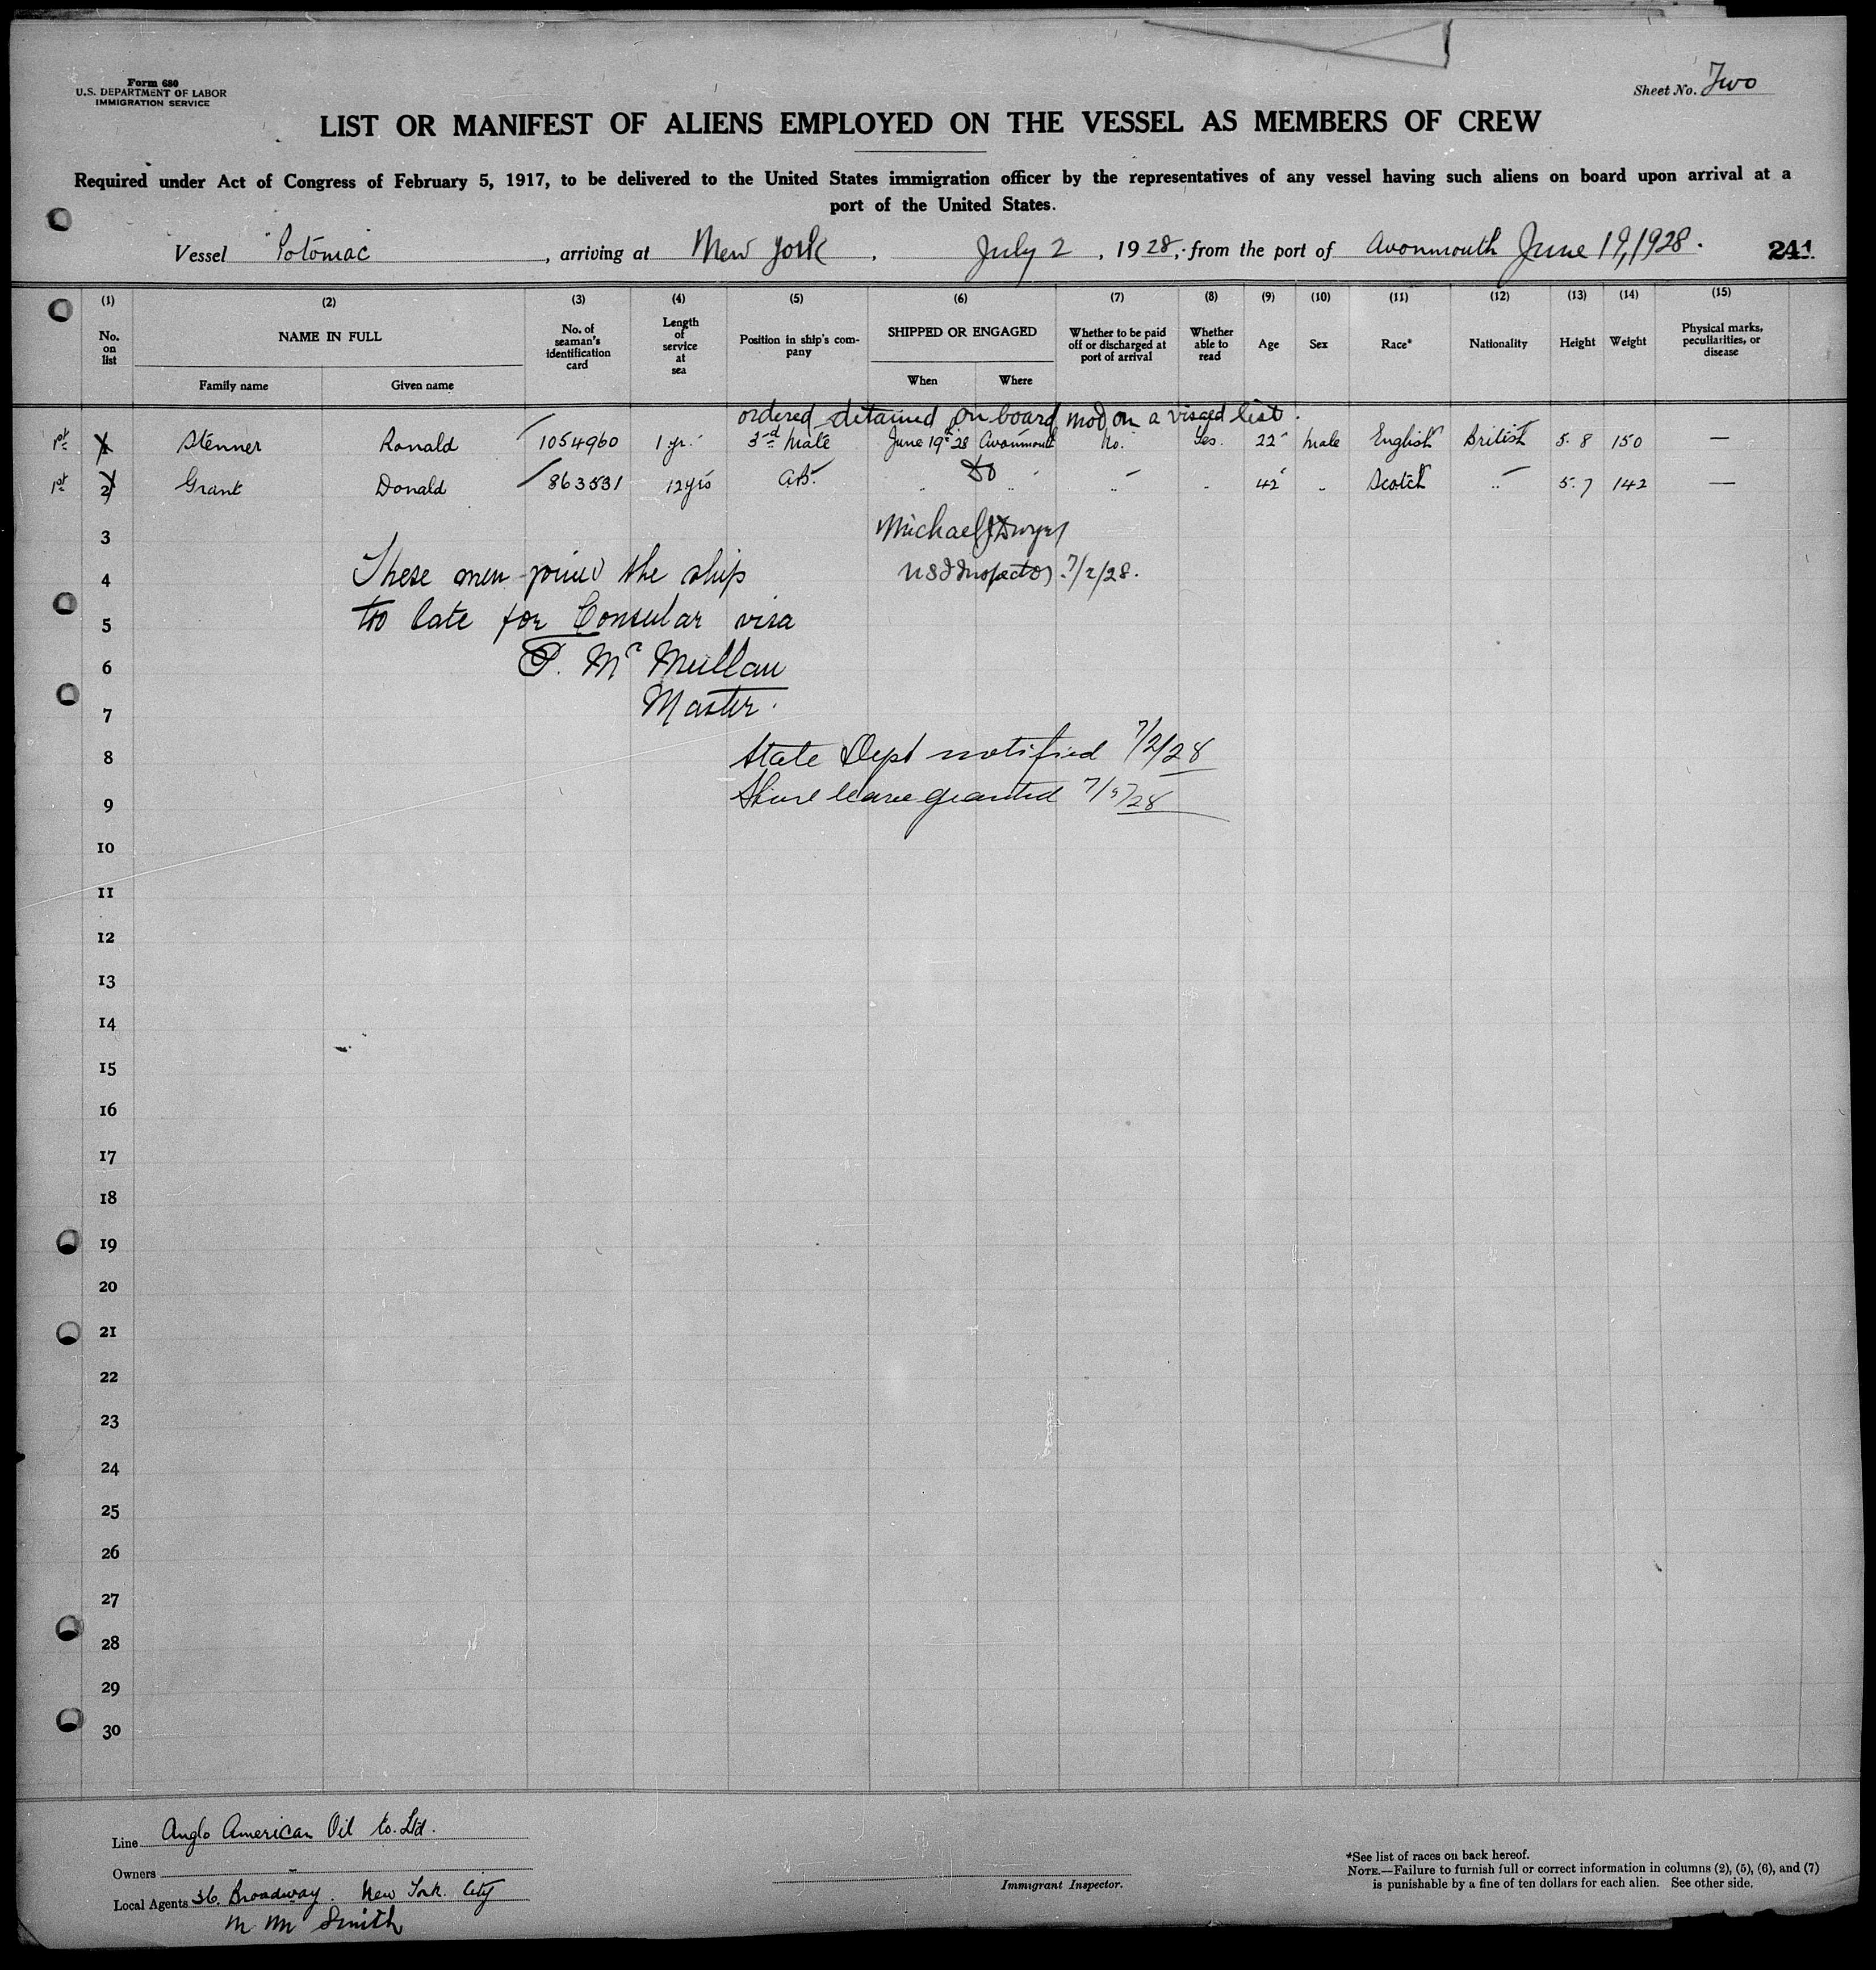 Form 680
U.S. DEPARTMENT OF LABOR
IMMIGRATION SERVICE
Sheet No. Two
LIST OR MANIFEST OF ALIENS EMPLOYED ON THE VESSEL AS MEMBERS OF CREW
Required under Act of Congress of February 5, 1917, to be delivered to the United States immigration officer by the representatives of any vessel having such aliens on board upon arrival at a
port of the United States.
Vessel Potomac, arriving at New York, July 2, 1928, from the port of Avonmouth June 19, 1928. 241
(1) (2) (3) (4) (5) (6) (7) (8) (9) (10) (11) (12) (13) (14) (15)
No. on list NAME IN FULL No. of seaman's identification card Length of service at sea Position in ship's company SHIPPED OR ENGAGED Whether to be paid off or discharged at port of arrival Whether able to read Age Sex Race* Nationality Height Weight Physical marks, peculiarities, or disease
Family name Given name When Where
ordered detained on board on a visaed list.
1st 1 Stenner Ronald 1054960 1 yr. 3rd Mate June 19th 28 Avonmouth No. Yes. 22 Male English British 5.8 150 —
1st 2 Grant Donald 863531 12 yrs A.B. " Do " " " 42 " Scotch " 5.7 142 —
3 Michael J Dwyer
4 These men joined the ship US Inspector 7/2/28.
5 too late for Consular visa
6 P. Mc Mullan
7 Master.
8 State Dept notified 7/2/28
9 Shore leave granted
10
11
12
13
14
15
16
17
18
19
20
21
22
23
24
25
26
27
28
29
30
Line Anglo American Oil Co. Ltd.
Owners
Local Agents 36. Broadway. New York. City
M M Smith
Immigrant Inspector.
*See list of races on back hereof.
NOTE.—Failure to furnish full or correct information in columns (2), (5), (6), and (7)
is punishable by a fine of ten dollars for each alien. See other side.